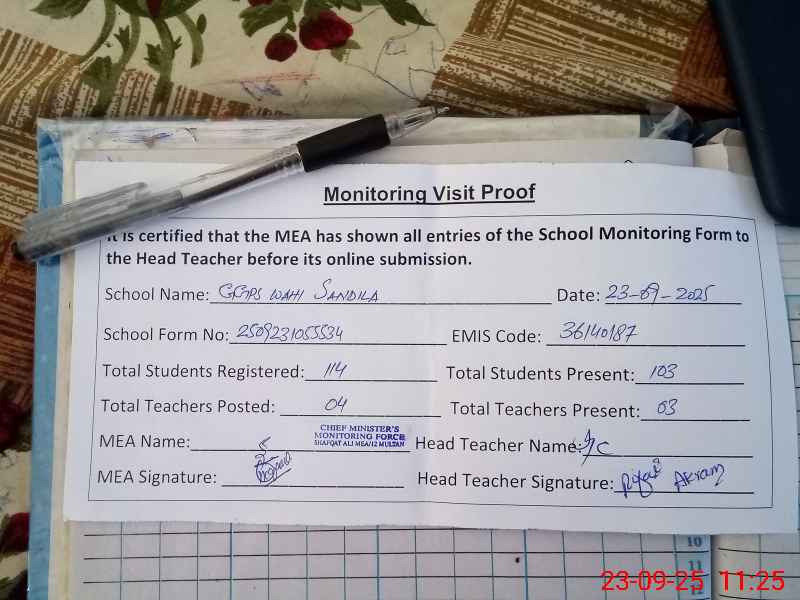 Monitoring Visit Proof
It is certified that the MEA has shown all entries of the School Monitoring Form to
the Head Teacher before its online submission.
School Name: GGPS WAHI SANDILA Date: 23-09-2025
School Form No: 2509231055534 EMIS Code: 36140187
Total Students Registered: 114 Total Students Present: 103
Total Teachers Posted: 04 Total Teachers Present: 03
CHIEF MINISTER'S
MONITORING FORCE
SHAFQAT ALI MEA/12 MULTAN
MEA Name: Head Teacher Name: I/C
MEA Signature: Head Teacher Signature: Rifat Akram
10
11
23-09-25 11:25